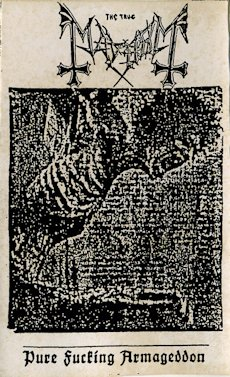 THE TRUE
MAYHEM
Pure Fucking Armageddon